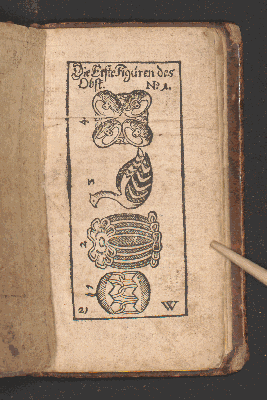 Die Erste Figuren des
Obst. No 1.
4.
3
2.
1
21
W